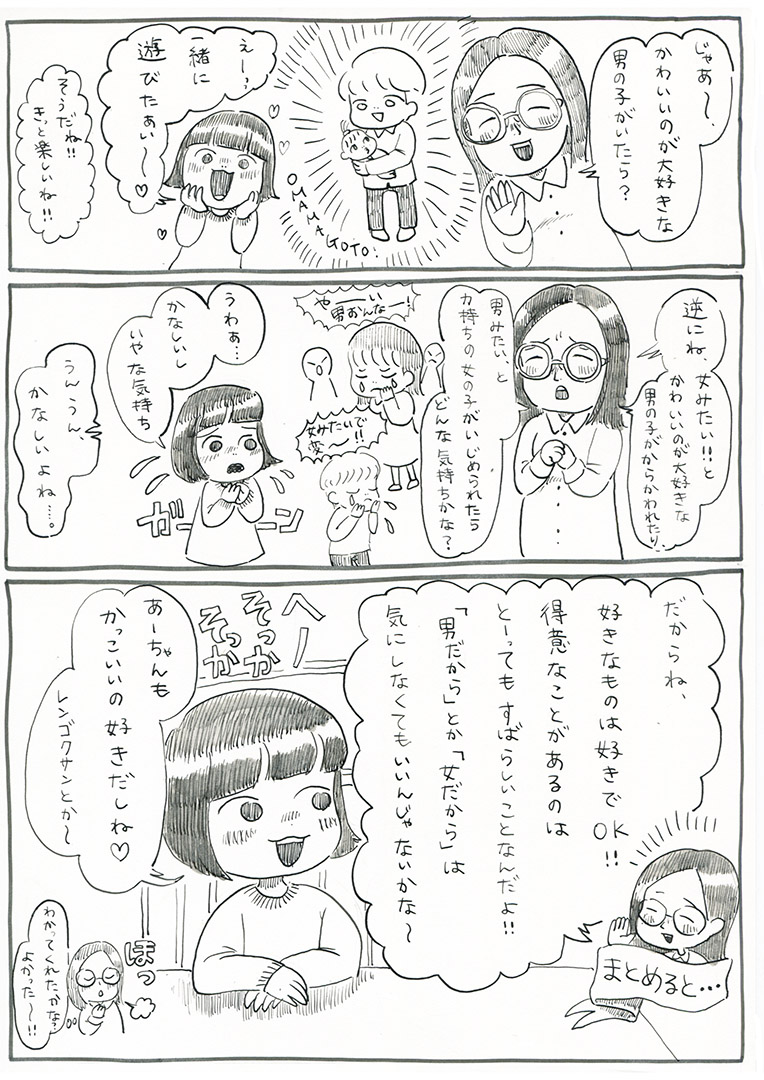 じゃあ〜、
かわいいのが大好きな
男の子がいたら？
OMAMAGOTO!
えーっ
一緒に
遊びたぁい〜♡
そうだね!!
きっと楽しいね!!
逆にね、
女みたい!!と
かわいいのが大好きな
男の子がからかわれたり、
男みたい、と
力持ちの女の子がいじめられたら
どんな気持ちかな？
やーい
男おんなー!
女みたいで
変〜!!
うわぁ…
かなしいし
いやな気持ち
ガーン
うんうん、
かなしいよね…。
まとめると…
だからね、
好きなものは好きで
OK!!
得意なことがあるのは
とーってもすばらしいことなんだよ!!
「男だから」とか「女だから」は
気にしなくてもいいんじゃないかな〜
へー
そっか
そっか
あーちゃんも
かっこいいの好きだしね♡
レンゴクサンとか〜
ほっ
わかってくれたかな?
よかった〜!!